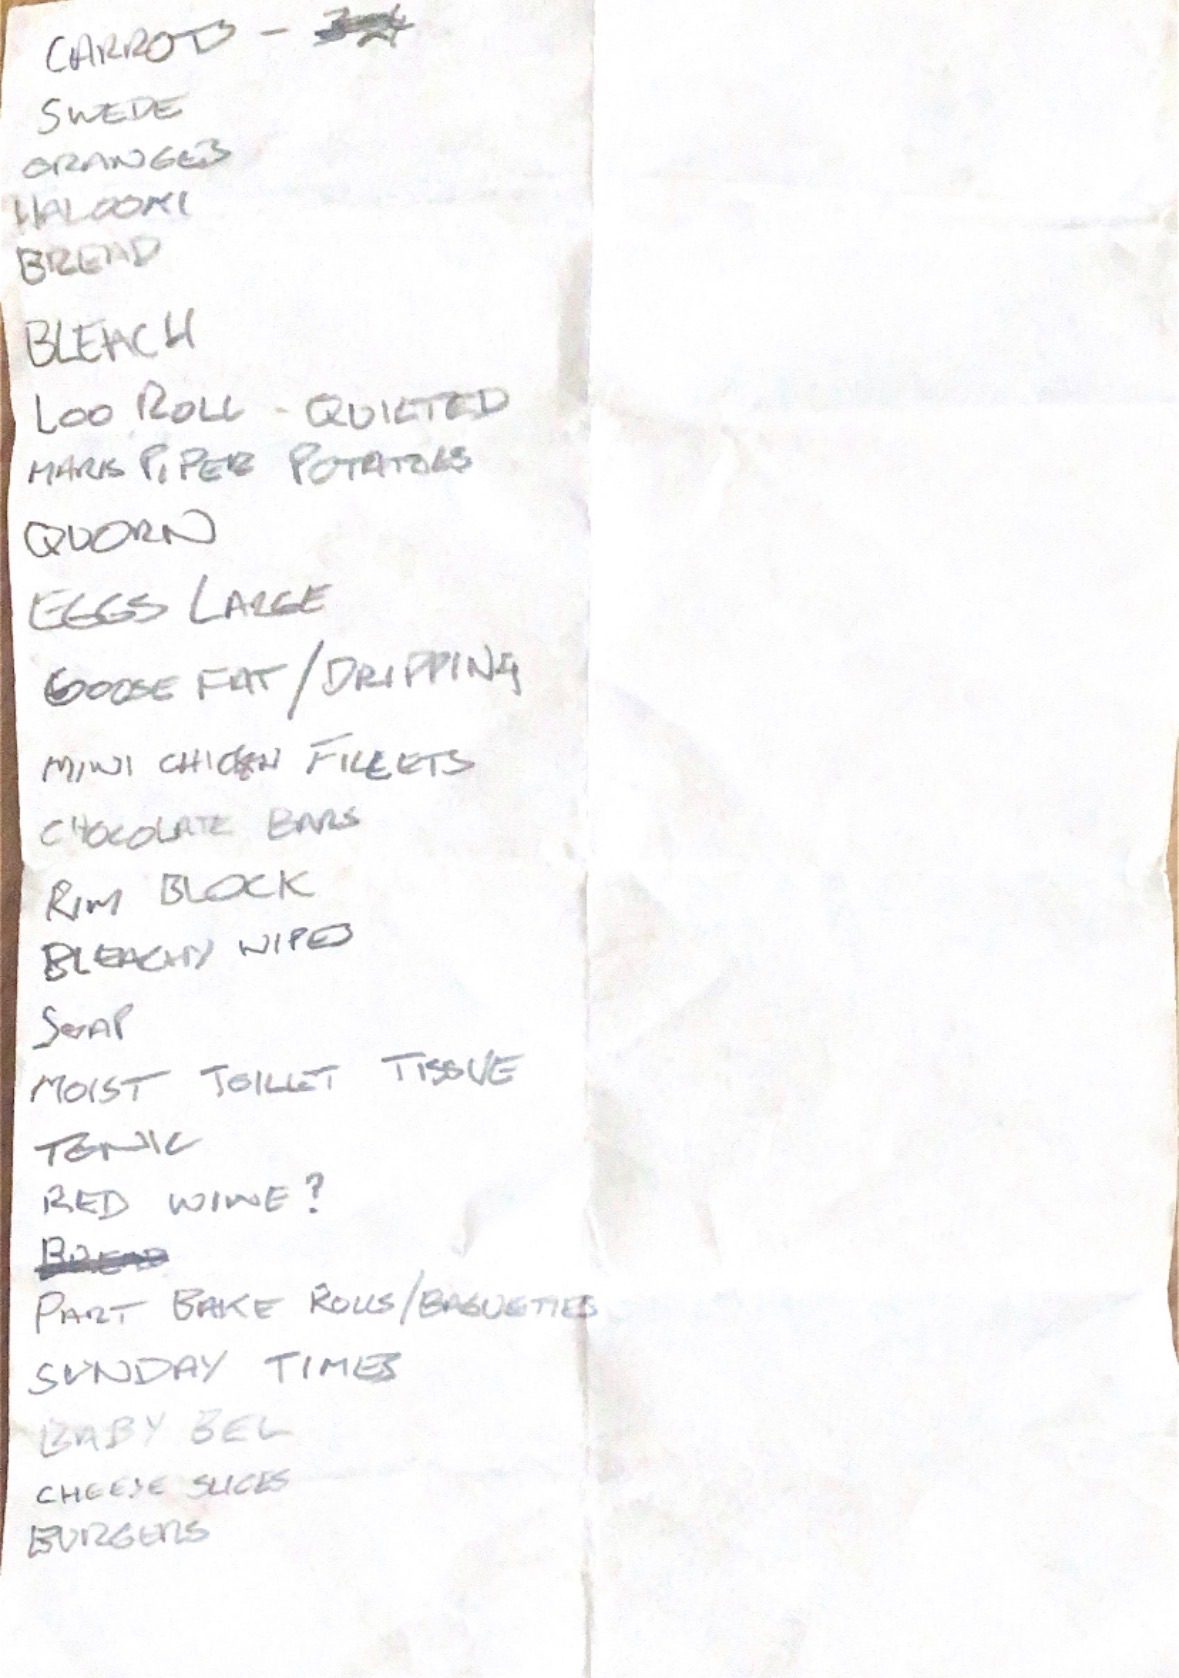 CARROTS -
SWEDE
ORANGES
HALOOMI
BREAD
BLEACH
LOO ROLL - QUILTED
MARIS PIPER POTATOES
QUORN
EGGS LARGE
GOOSE FAT/DRIPPING
MINI CHICKEN FILLETS
CHOCOLATE BARS
RIM BLOCK
BLEACHY WIPES
SOAP
MOIST TOILLET TISSUE
TONIC
RED WINE?
BREAD
PART BAKE ROLLS/BAGUETTES
SUNDAY TIMES
BABY BEL
CHEESE SLICES
BURGERS